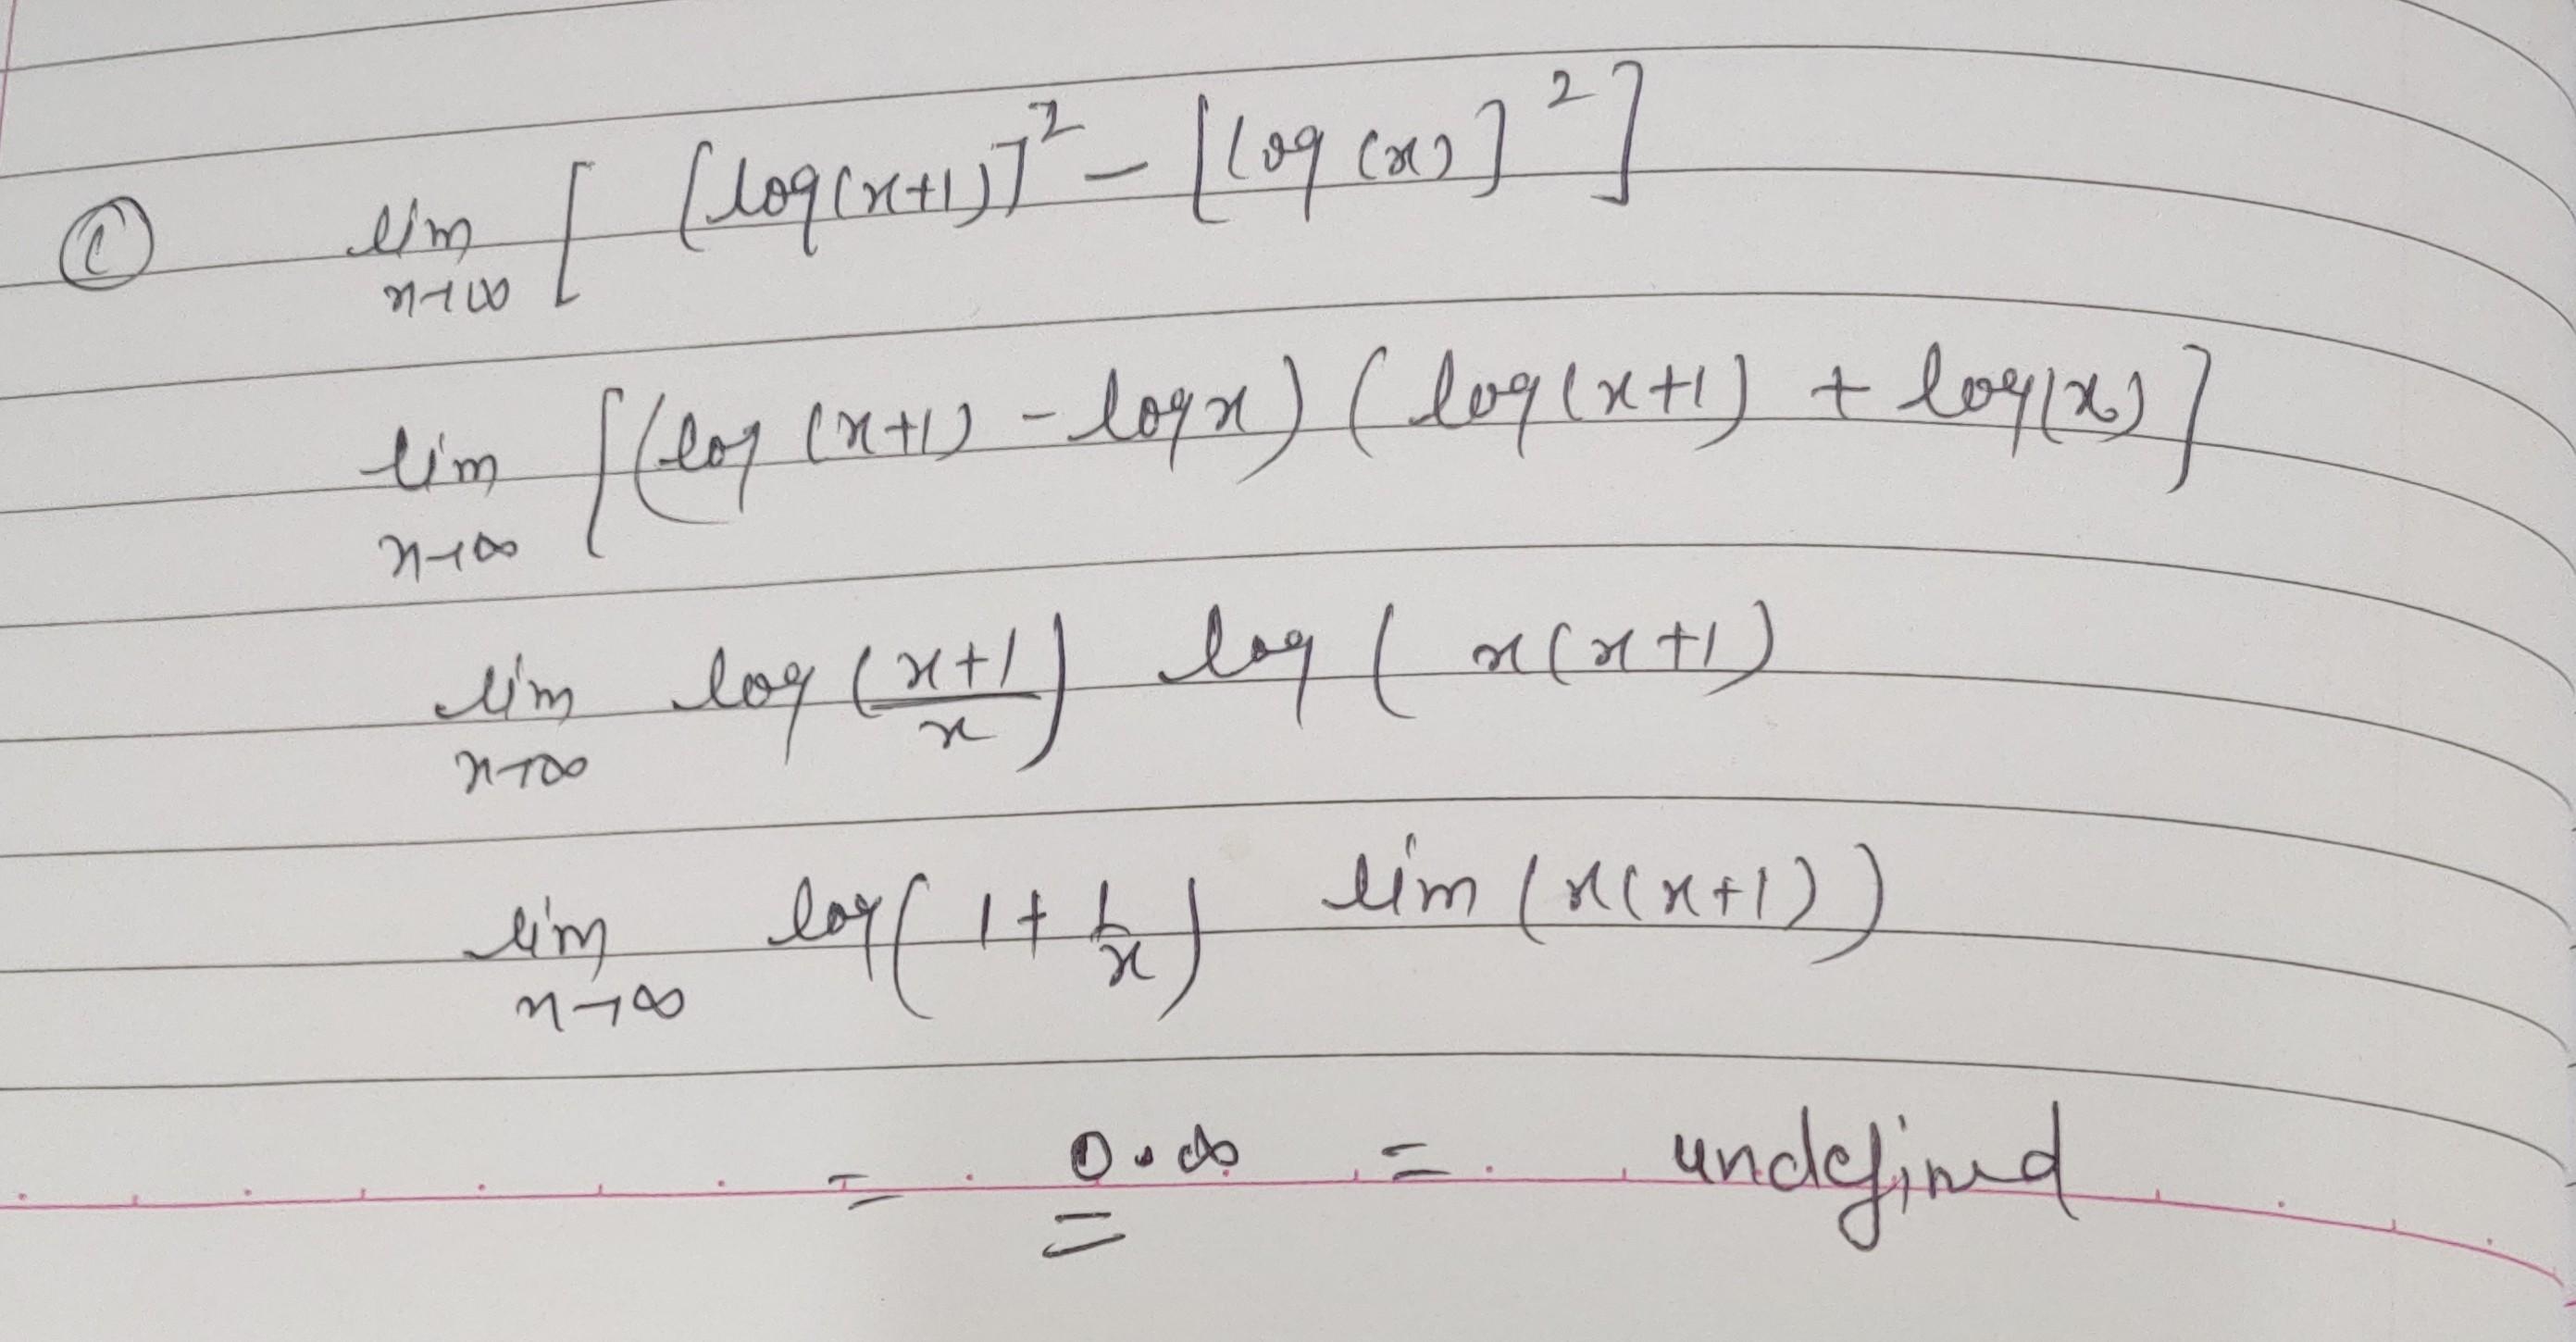 (c) lim x→∞ [ [log(x+1)]² - [log(x)]² ]
lim x→∞ [(log(x+1) - log x) (log(x+1) + log(x)]
lim x→∞ log(x+1/x) log( x(x+1)
lim x→∞ log(1+1/x) lim (x(x+1))
= 0.∞ = undefined